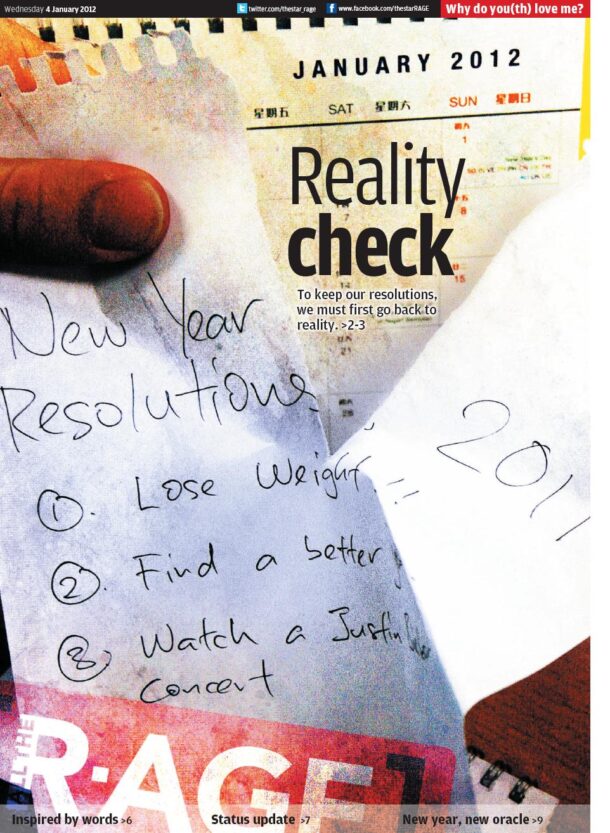 Wednesday 4 January 2012
twitter.com/thestar_rage
www.facebook.com/thestarRAGE
Why do you(th) love me?
JANUARY 2012
星期五 SAT 星期六 SUN 星期日
1
8
15
Reality
check
To keep our resolutions,
we must first go back to
reality. >2-3
14
21
28
New Year
Resolutions
2011
1. Lose Weight.
2. Find a better
3. Watch a Justin
Concert
ALL THE
R.AGE
Inspired by words >6
Status update >7
New year, new oracle >9